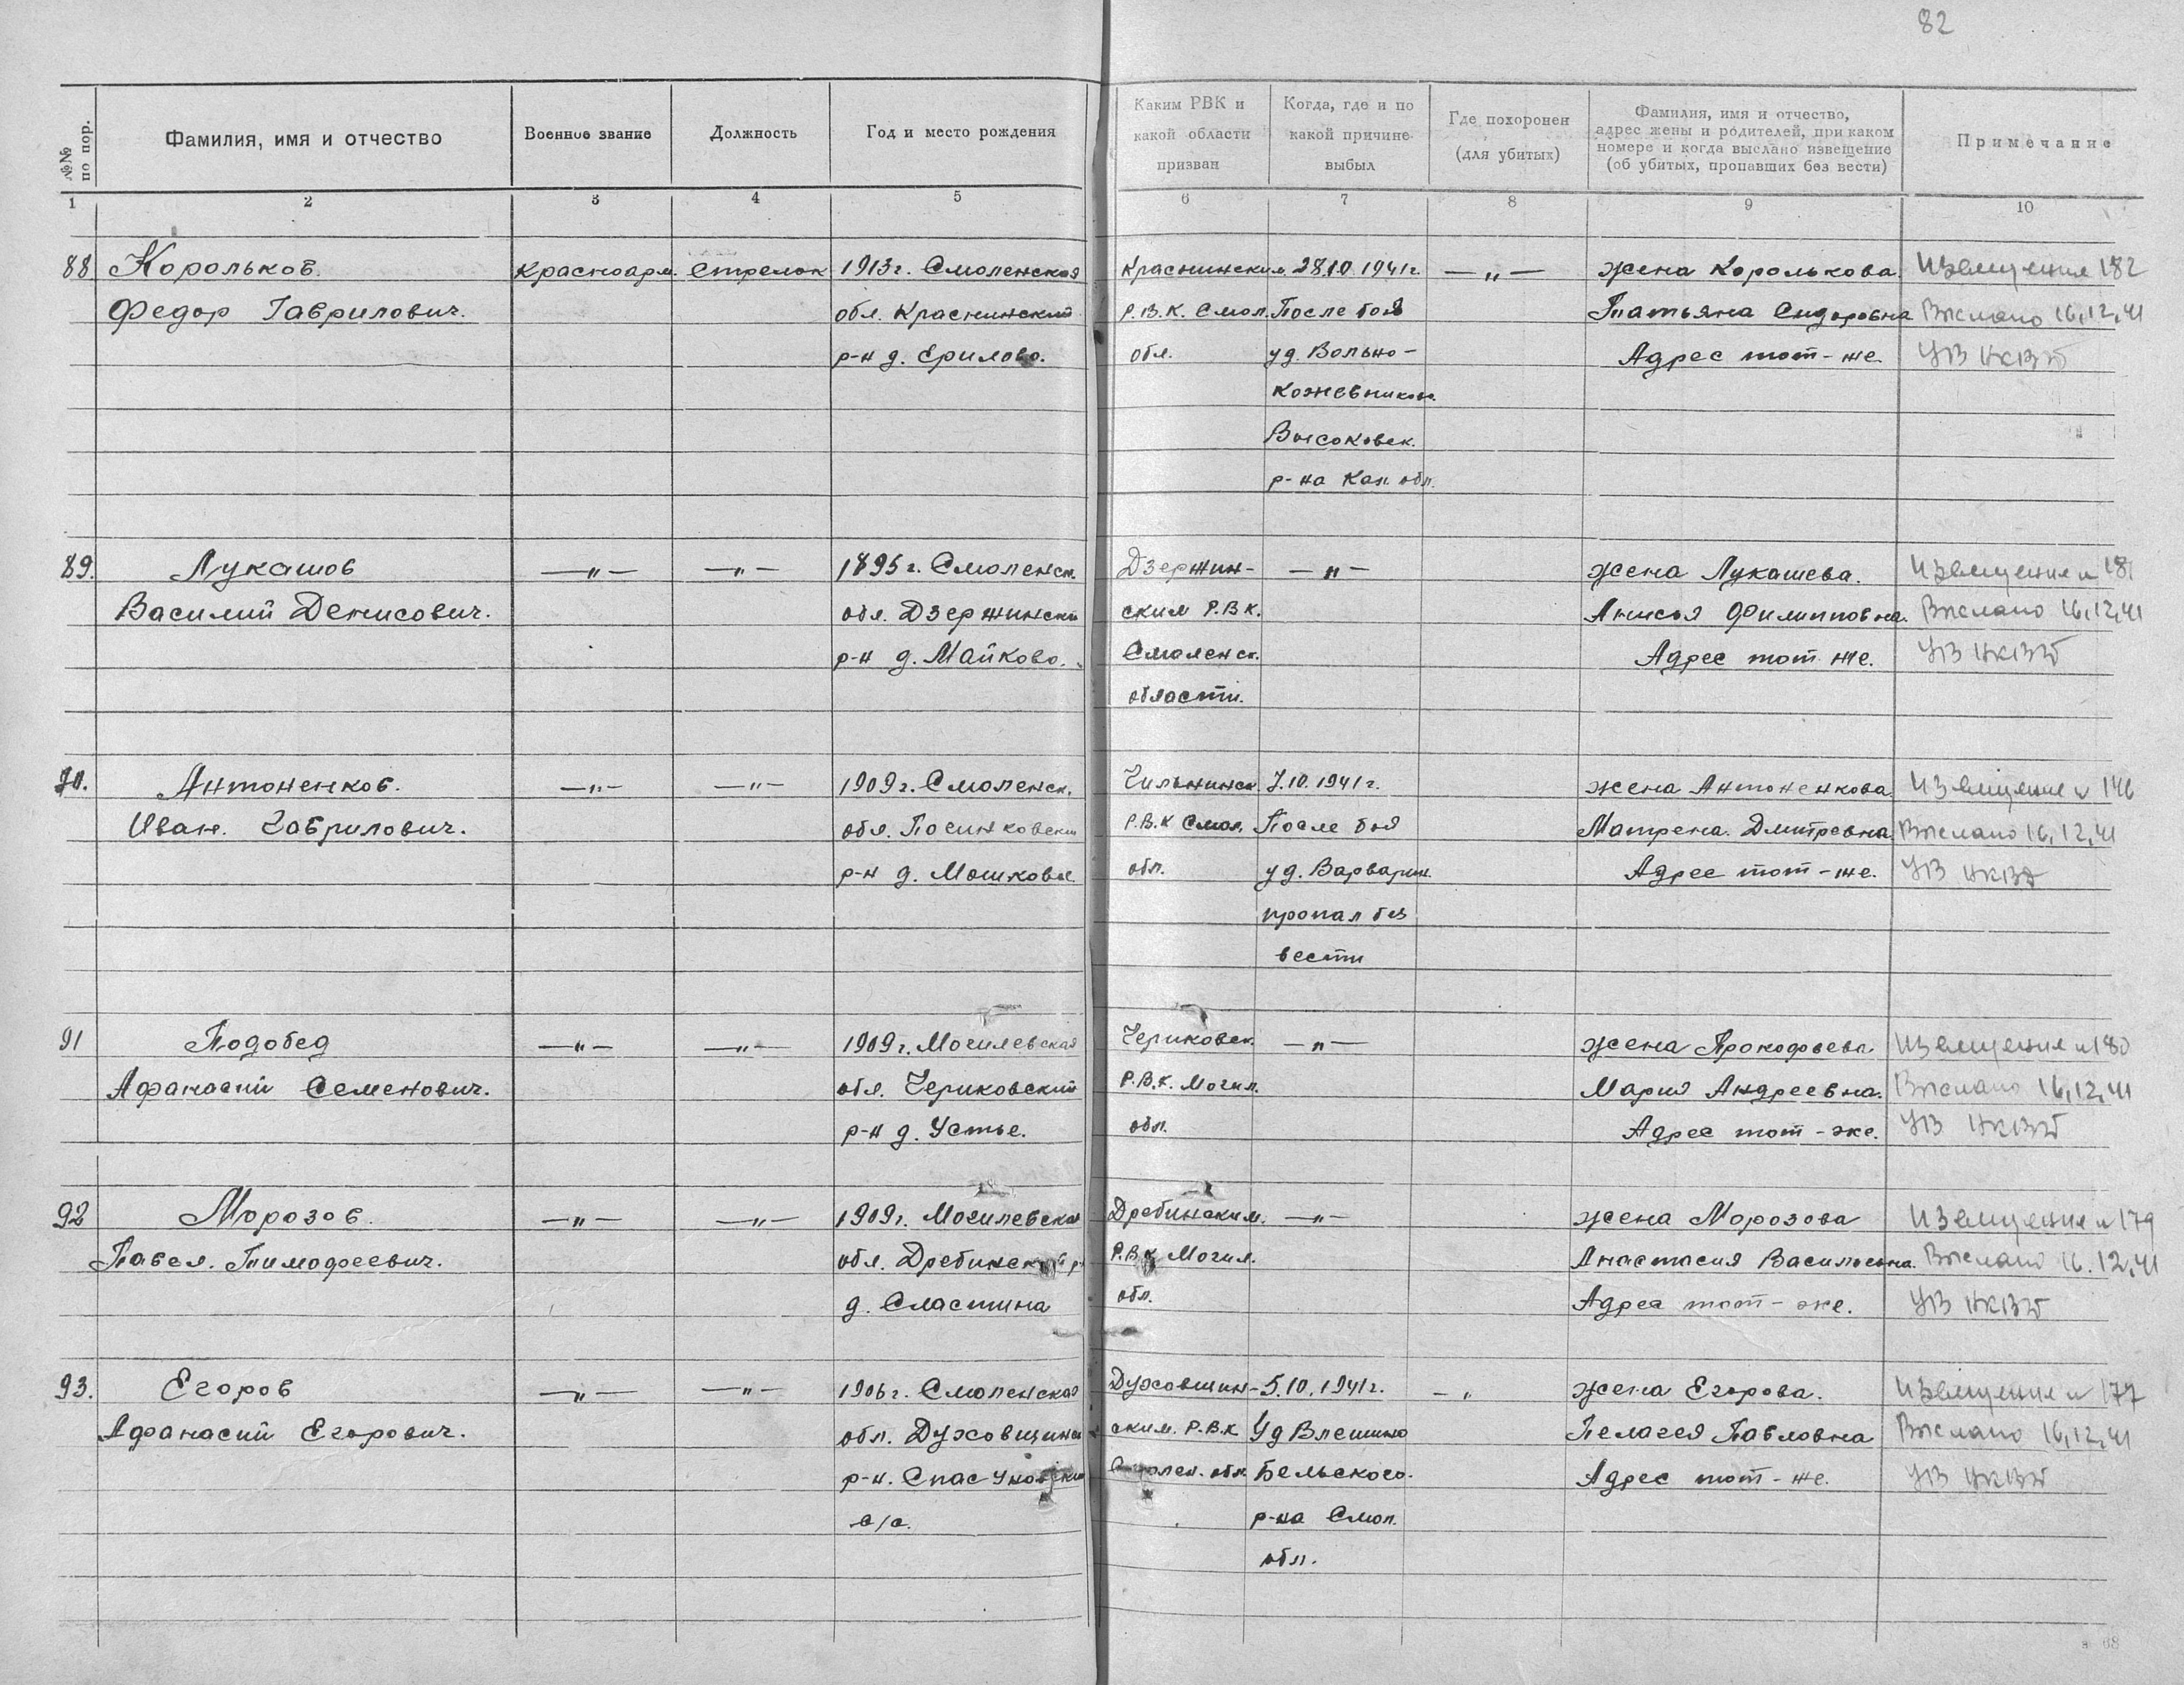 82
№№ по пор.
Фамилия, имя и отчество
Военное звание
Должность
Год и место рождения
Каким РВК и какой области призван
Когда, где и по какой причине выбыл
Где похоронен (для убитых)
Фамилия, имя и отчество, адрес жены и родителей, при каком номере и когда выслано извещение (об убитых, пропавших без вести)
Примечание
1 2 3 4 5 6 7 8 9 10
88 Корольков. Красноарм. Стрелок 1913 г. Смоленская Краснинским 28.10.1941 г. —„— жена Королькова. Извещение 182
Федор Гаврилович. обл. Краснинский Р.В.К. Смол. После боя Татьяна Сидоровна Выслано 16.12.41
р-н д. Ерилово. обл. у д. Вольно- Адрес тот-же.
Кожевников.
Высоковск.
р-на Кал. обл.
89. Лукашов —„— —„— 1895 г. Смоленск. Дзержин- —„— жена Лукашева. Извещение 181
Василий Денисович. обл. Дзержински ским Р.В.К. Анисья Филипповна. Выслано 16.12.41
р-н д. Майково. Смоленск. Адрес тот же.
области.
90. Антоненков. —„— —„— 1909 г. Смоленск. 7.10.1941 г. жена Антоненкова. Извещение 146
Иван. Гаврилович. обл. Р.В.К Смол. После боя Матрена. Дмитревна. Выслано 16.12.41
р-н д. Мошковое обл. у д. Варварин. Адрес тот-же.
пропал без
вести
91 Подобед —„— —„— 1909 г. Могилевская Чериковск. —„— жена Прокофьева. Извещение 180
Афанасий Семенович. обл. Чериковский Р.В.К. Могил. Мария Андреевна. Выслано 16.12.41
р-н д. Устье. обл. Адрес тот-же.
92 Морозов. —„— —„— 1909 г. Могилевская Дребинским. —„— жена Морозова Извещение 179
Павел. Тимофеевич. обл. Дребинский Р.В.К Могил. Анастасия Васильевна. Выслано 16.12.41
д. Сластина обл. Адрес тот-же.
93. Егоров —„— —„— 1906 г. Смоленская Духовщин- 5.10.1941 г. —„ жена Егорова. Извещение 177
Афанасий Егорович. обл. Духовщинск ским. Р.В.К У д Влешино Пелагея Павловна Выслано 16.12.41
р-н. Смолен. обл. Бельского. Адрес тот-же.
с/с. р-на Смол.
обл.
68